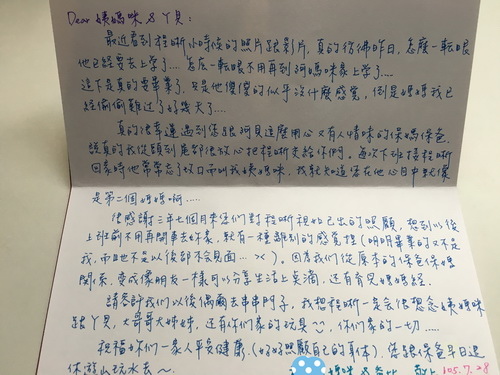 Dear 姨媽咪 & ㄚ貝：
最近看到程晰小時候的照片跟影片，真的彷彿昨日，怎麼一轉眼
他已經要去上學了.... 怎麼一轉眼不用再到阿媽咪家上學了....
這下是真的要畢業了，只是他傻傻的似乎沒什麼感覺，倒是媽媽我已
經偷偷難過了好幾天了....
真的很幸運遇到您跟阿貝這麼用心又有人情味的保媽保爸，
說真的我從頭到尾都很放心把程晰交給你們。每次下班接程晰
回家時他常常忘了改口而叫我姨媽咪，我就知道您在他心目中就像
是第二個媽媽啊.....
很感謝三年七個月來您們對程晰視如己出的照顧，想到以後
上班前不用再開車去好家，就有一種離別的感覺捏（明明畢業的又不是
我，而且也不是以後都不會見面...><）。因為我們從原本的保爸保媽
關係，變成像朋友一樣可以分享生活上點滴，還有育兒媽媽經.
請容許我們以後偶爾去串串門子，我想程晰一定會很想念姨媽咪
跟ㄚ貝，大哥哥大姊姊，還有你們家的玩具，你們家的一切.....
祝福你們一家人平安健康（好好照顧自己的身體），您跟保爸早日退
休遊山玩水去～
敬上 105.7.28